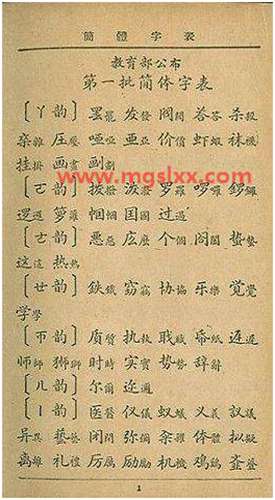 簡體字表
教育部公布
第一批简体字表
〔ㄚ韵〕罢罷 发發 阀閥 荅答 杀殺
杂雜 压壓 哑啞 亚亞 价價 虾蝦 袜襪
挂掛 画畫 划劃
www.mgslxx.com
〔ㄛ韵〕拨撥 泼潑 罗羅 啰囉 鑼
逻邏 箩籮 帼幗 国國 过過
〔ㄜ韵〕恶惡 庅麼 个個 阁閣 蛰蟄
这這 热熱
〔ㄝ韵〕鉄鐵 窃竊 协協 乐樂 觉覺
学學
〔ㄭ韵〕质質 执執 职職 帋紙 迟遲
师師 狮獅 时時 实實 势勢 辞辭
〔ㄦ韵〕尔爾 迩邇
〔ㄧ韵〕医醫 仪儀 蚁蟻 义義 議
异異 艺藝 闭閉 弥彌 籴糴 体體 拟擬
离離 礼禮 厉厲 励勵 机機 鸡鷄
1